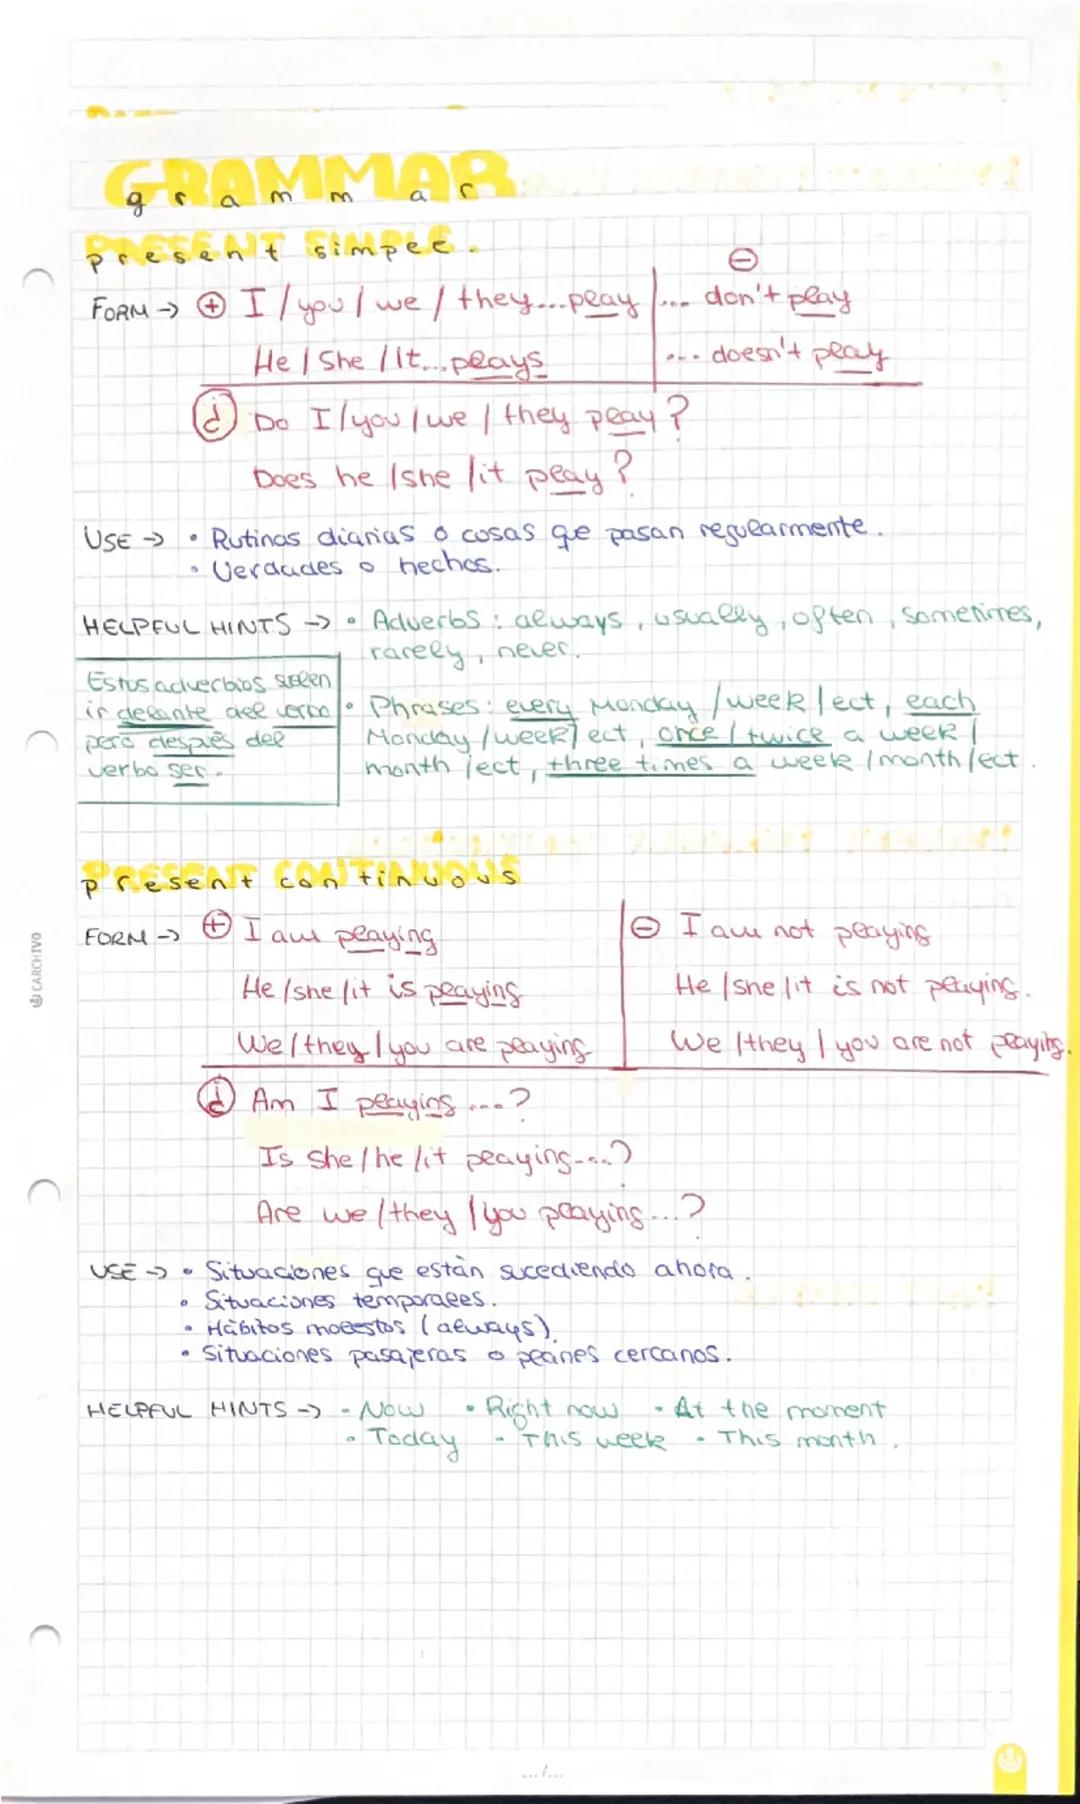 GRAMMAR
grammar
PRESENT SIMPLE
present simple.
FORM → ⊕ I / you / we / they...play | ⊖ ... don't play
He / She / It...plays | ... doesn't play
¿? Do I / you / we / they play?
Does he / she / it play?
USE → • Rutinas diarias o cosas que pasan regularmente.
• Verdades o hechos.
HELPFUL HINTS → • Adverbs: always, usually, often, sometimes,
rarely, never.
Estos adverbios suelen
ir delante del verbo
pero después del
verbo ser.
• Phrases: every Monday / week / ect, each
Monday / week / ect, once / twice a week /
month / ect, three times a week / month / ect.
PRESENT CONTINUOUS
present continuous
FORM → ⊕ I am playing | ⊖ I am not playing
He / she / it is playing | He / she / it is not playing.
We / they / you are playing | We / they / you are not playing.
¿? Am I playing ...?
Is she / he / it playing...?
Are we / they / you playing...?
USE → • Situaciones que están sucediendo ahora.
• Situaciones temporales.
• Hábitos molestos (always).
• Situaciones pasajeras o planes cercanos.
HELPFUL HINTS → • Now • Right now • At the moment
• Today • This week • This month.
CARCHIVO
.../...